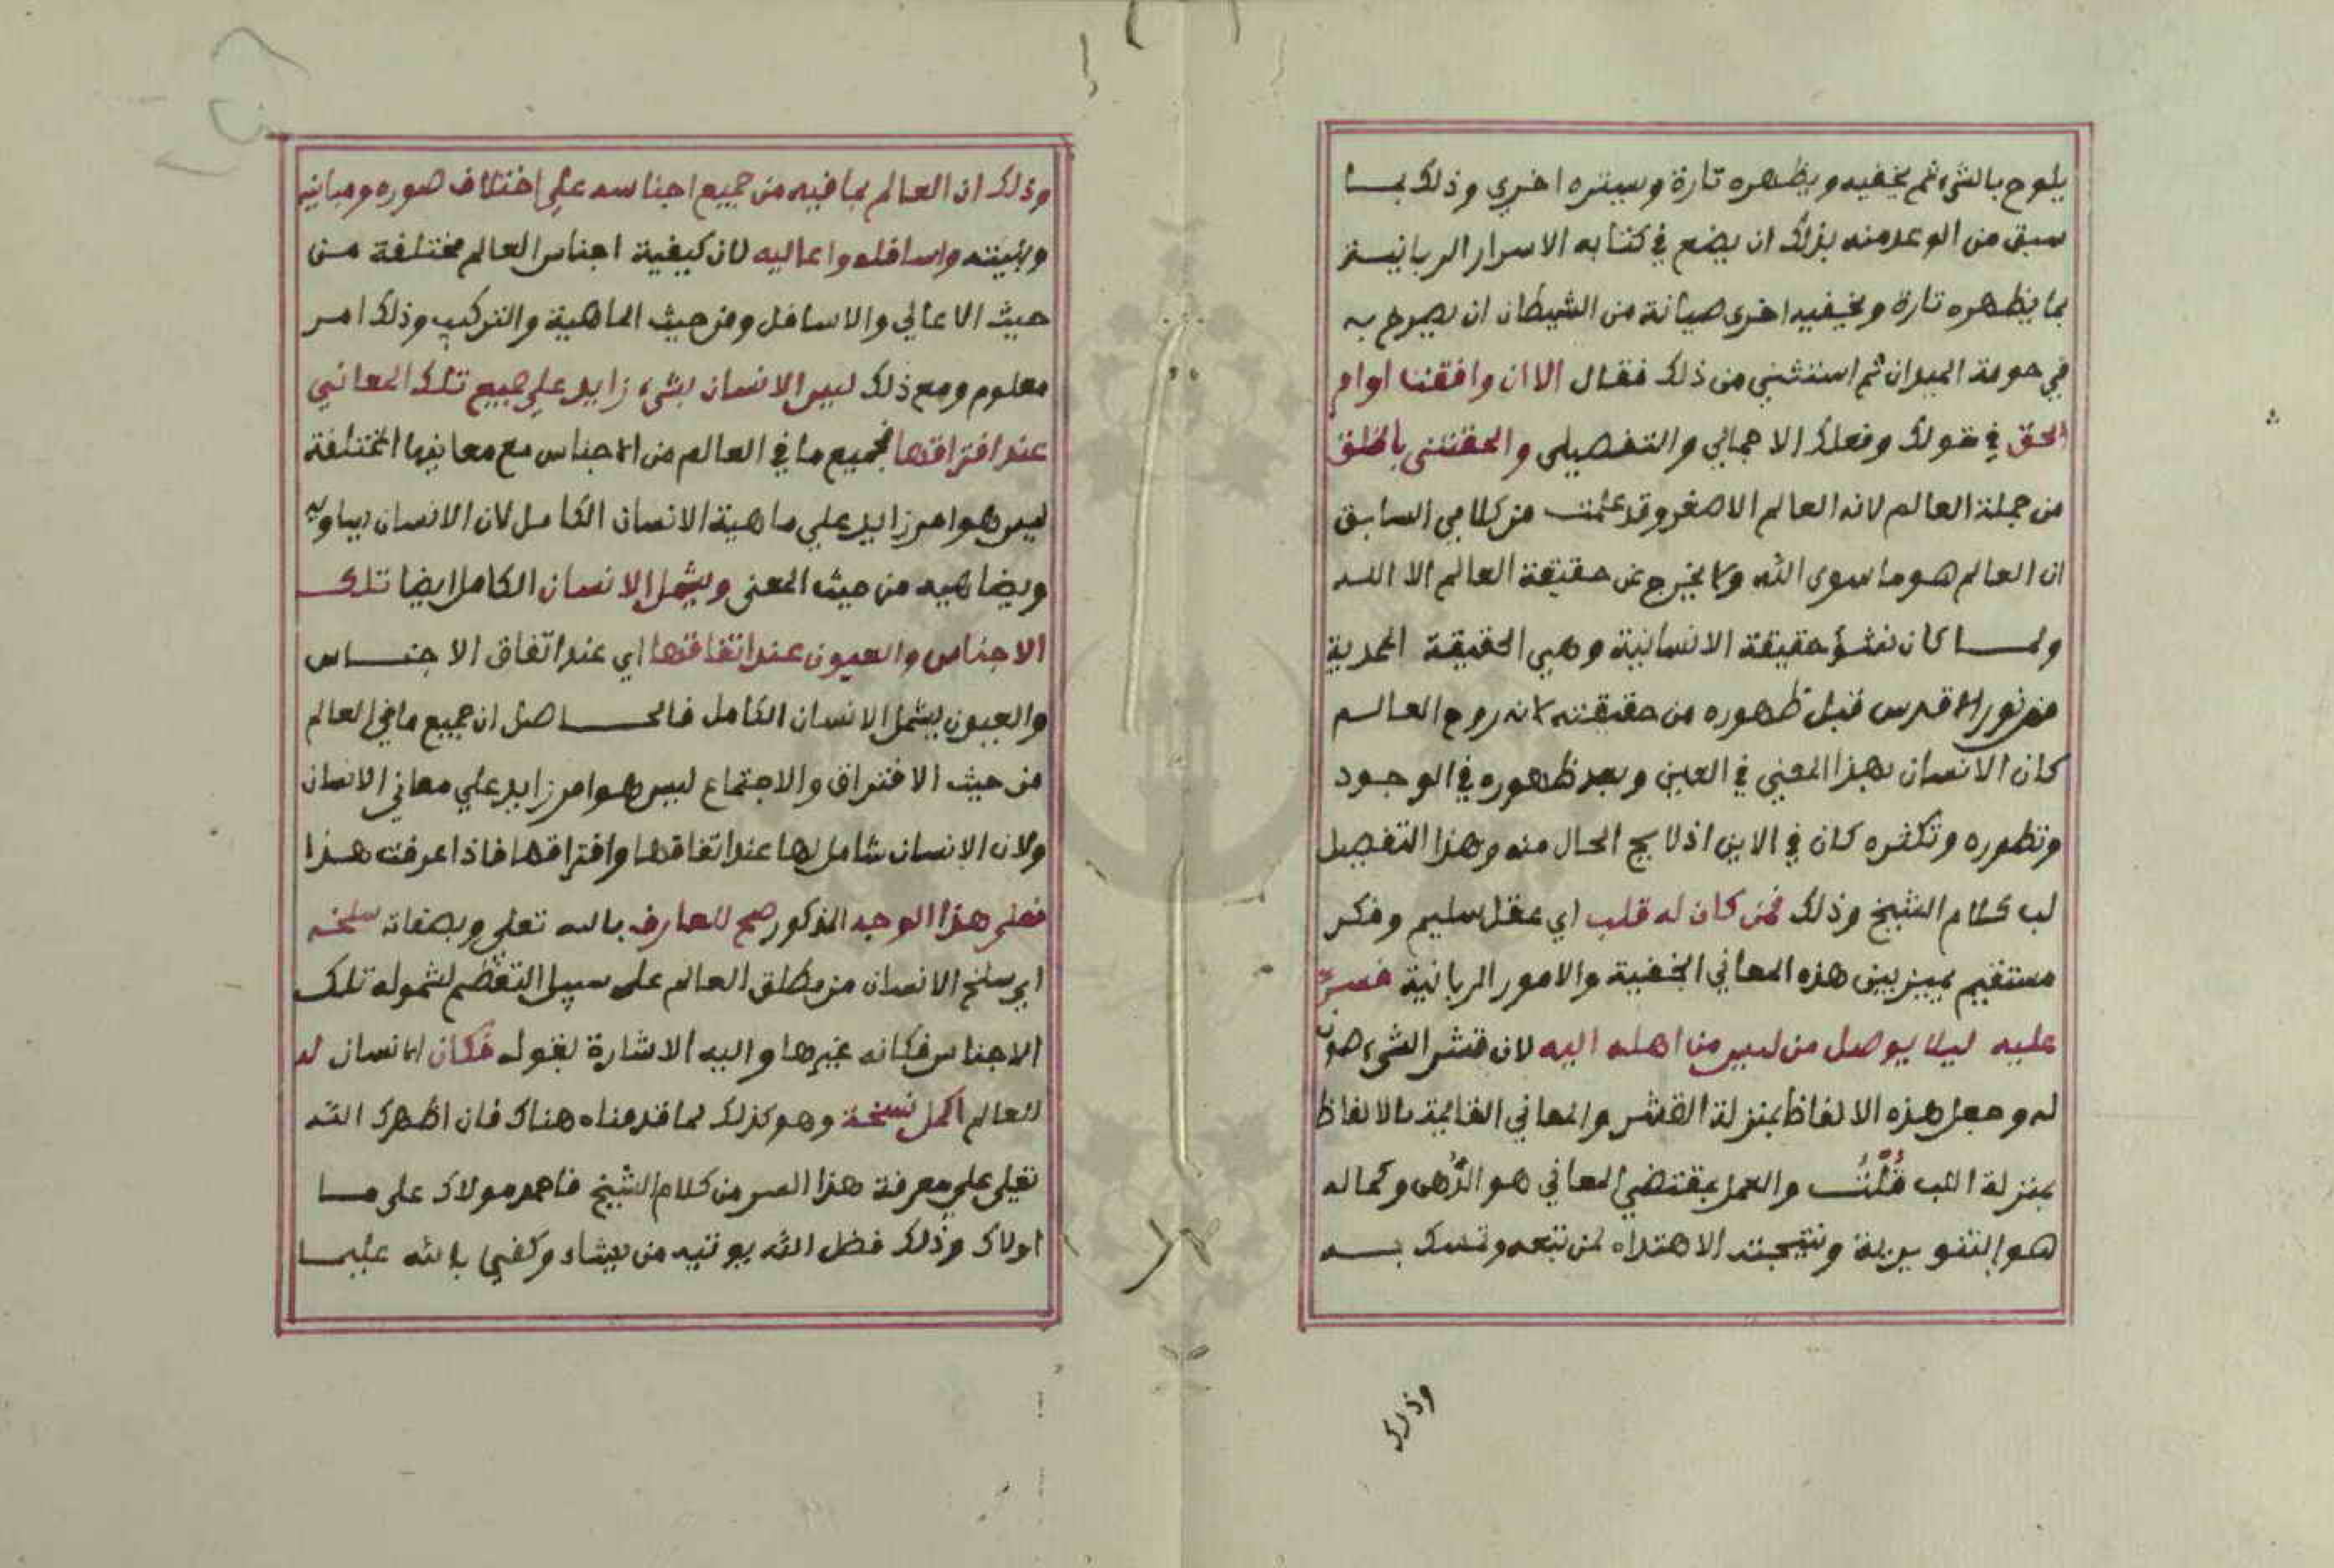 يلوح بالشيء ثم يخفيه ويظهره تارة ويستره اخري وذلك بما
سبق من الوعد منه بذلك ان يضع في كتابه الاسرار الربانية
بما يظهره تارة ويخفيه اخرى صيانة من الشيطان ان يبوح به
في حومة الميدان ثم استثني من ذلك فقال الا ان وافقنا اوامر
الحق في قولك وفعلك الاجمالي والتفصيلي والحقتني بالخلق
من جملة العالم لانه العالم الاصغر وقد علمت من كلامي السابق
ان العالم هو ما سوى الله ولا يخرج عن حقيقة العالم الا الله
ولما كان نشؤ حقيقة الانسانية وهي الحقيقة المحمدية
من نور الاقدس قبل ظهوره من حقيقته لانه روح العالم
كان الانسان بهذا المعني في العين وبعد ظهوره في الوجود
وتطوره وتكثره كان في الاين اذ لا يج الحال منه وهذا التفصيل
لب كلام الشيخ وذلك فمن كان له قلب اي عقل سليم وفكر
مستقيم يميز بين هذه المعاني الخفية والامور الربانية
عليه ليلا يوصل من ليس من اهله اليه لان قشر الشيء صون
له وجعل هذه الالفاظ بمنزلة القشر والمعاني القايمة بالالفاظ
بمنزلة اللب قلت والعمل بمقتضي المعاني هو الدهن وكماله
هو التنوير به ونتيجته الاهتداء لمن تبعه وتمسك به
وذلك
وذلك ان العالم بما فيه من جميع اجناسه علي اختلاف صوره ومبانيه
وبنيته واسافله واعاليه لان كيفية اجناس العالم مختلفة من
حيث الاعالي والاسافل ومن حيث الماهية والتركيب وذلك امر
معلوم ومع ذلك ليس الانسان بشيء زايد علي جميع تلك المعاني
عند افتراقها فجميع ما في العالم من الاجناس مع معانيها المختلفة
ليس هو امر زايد علي ماهية الانسان الكامل لان الانسان يساويه
ويضاهيه من حيث المعنى ويشمل الانسان الكامل ايضا تلك
الاجناس والعيون عند اتفاقها اي عند اتفاق الاجناس
والعيون يشمل الانسان الكامل فالحاصل ان جميع ما في العالم
من حيث الافتراق والاجتماع ليس هو امر زايد علي معاني الانسان
ولان الانسان شامل لها عند اتفاقها وافتراقها فاذا عرفت هذا
فعلى هذا الوجه المذكور صح للعارف بالله تعلى وبصفاته سلخه
اي سلخ الانسان من مطلق العالم على سبيل التعظيم لشموله تلك
الاجناس فكانه غيرها واليه الاشارة بقوله فكان الانسان له
للعالم اكمل نسخة وهو كذلك لما قدمناه هناك فان اظهرك الله
تعلي علي معرفة هذا السر من كلام الشيخ فاحمد مولاك على ما
اولاك وذلك فضل الله يوتيه من يشاء وكفي بالله عليما